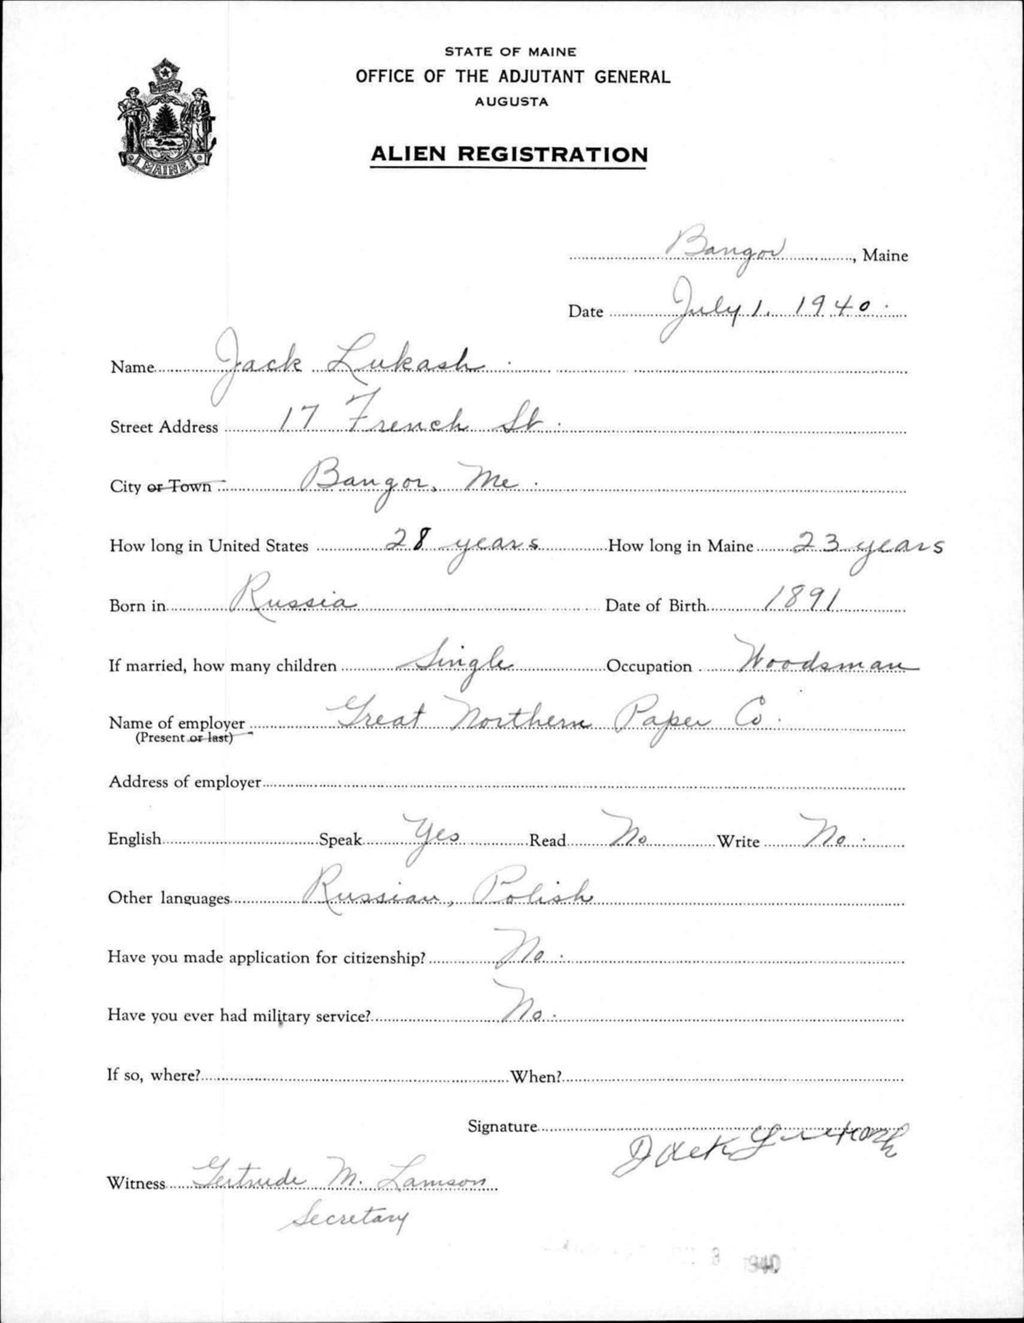 STATE OF MAINE
OFFICE OF THE ADJUTANT GENERAL
AUGUSTA
ALIEN REGISTRATION
MAINE
Bangor, Maine
Date July 1, 1940.
Name Jack Lukash.
Street Address 17 French St.
City or Town Bangor, Me.
How long in United States 28 years How long in Maine 23 years
Born in Russia Date of Birth 1891
If married, how many children Single Occupation Woodsman
Name of employer Great Northern Paper Co.
(Present or last)
Address of employer
English Speak Yes Read No Write No.
Other languages Russian, Polish
Have you made application for citizenship? No.
Have you ever had military service? No.
If so, where? When?
Signature Jack Lukash
Witness Gertrude M. Lamson
Secretary
1940